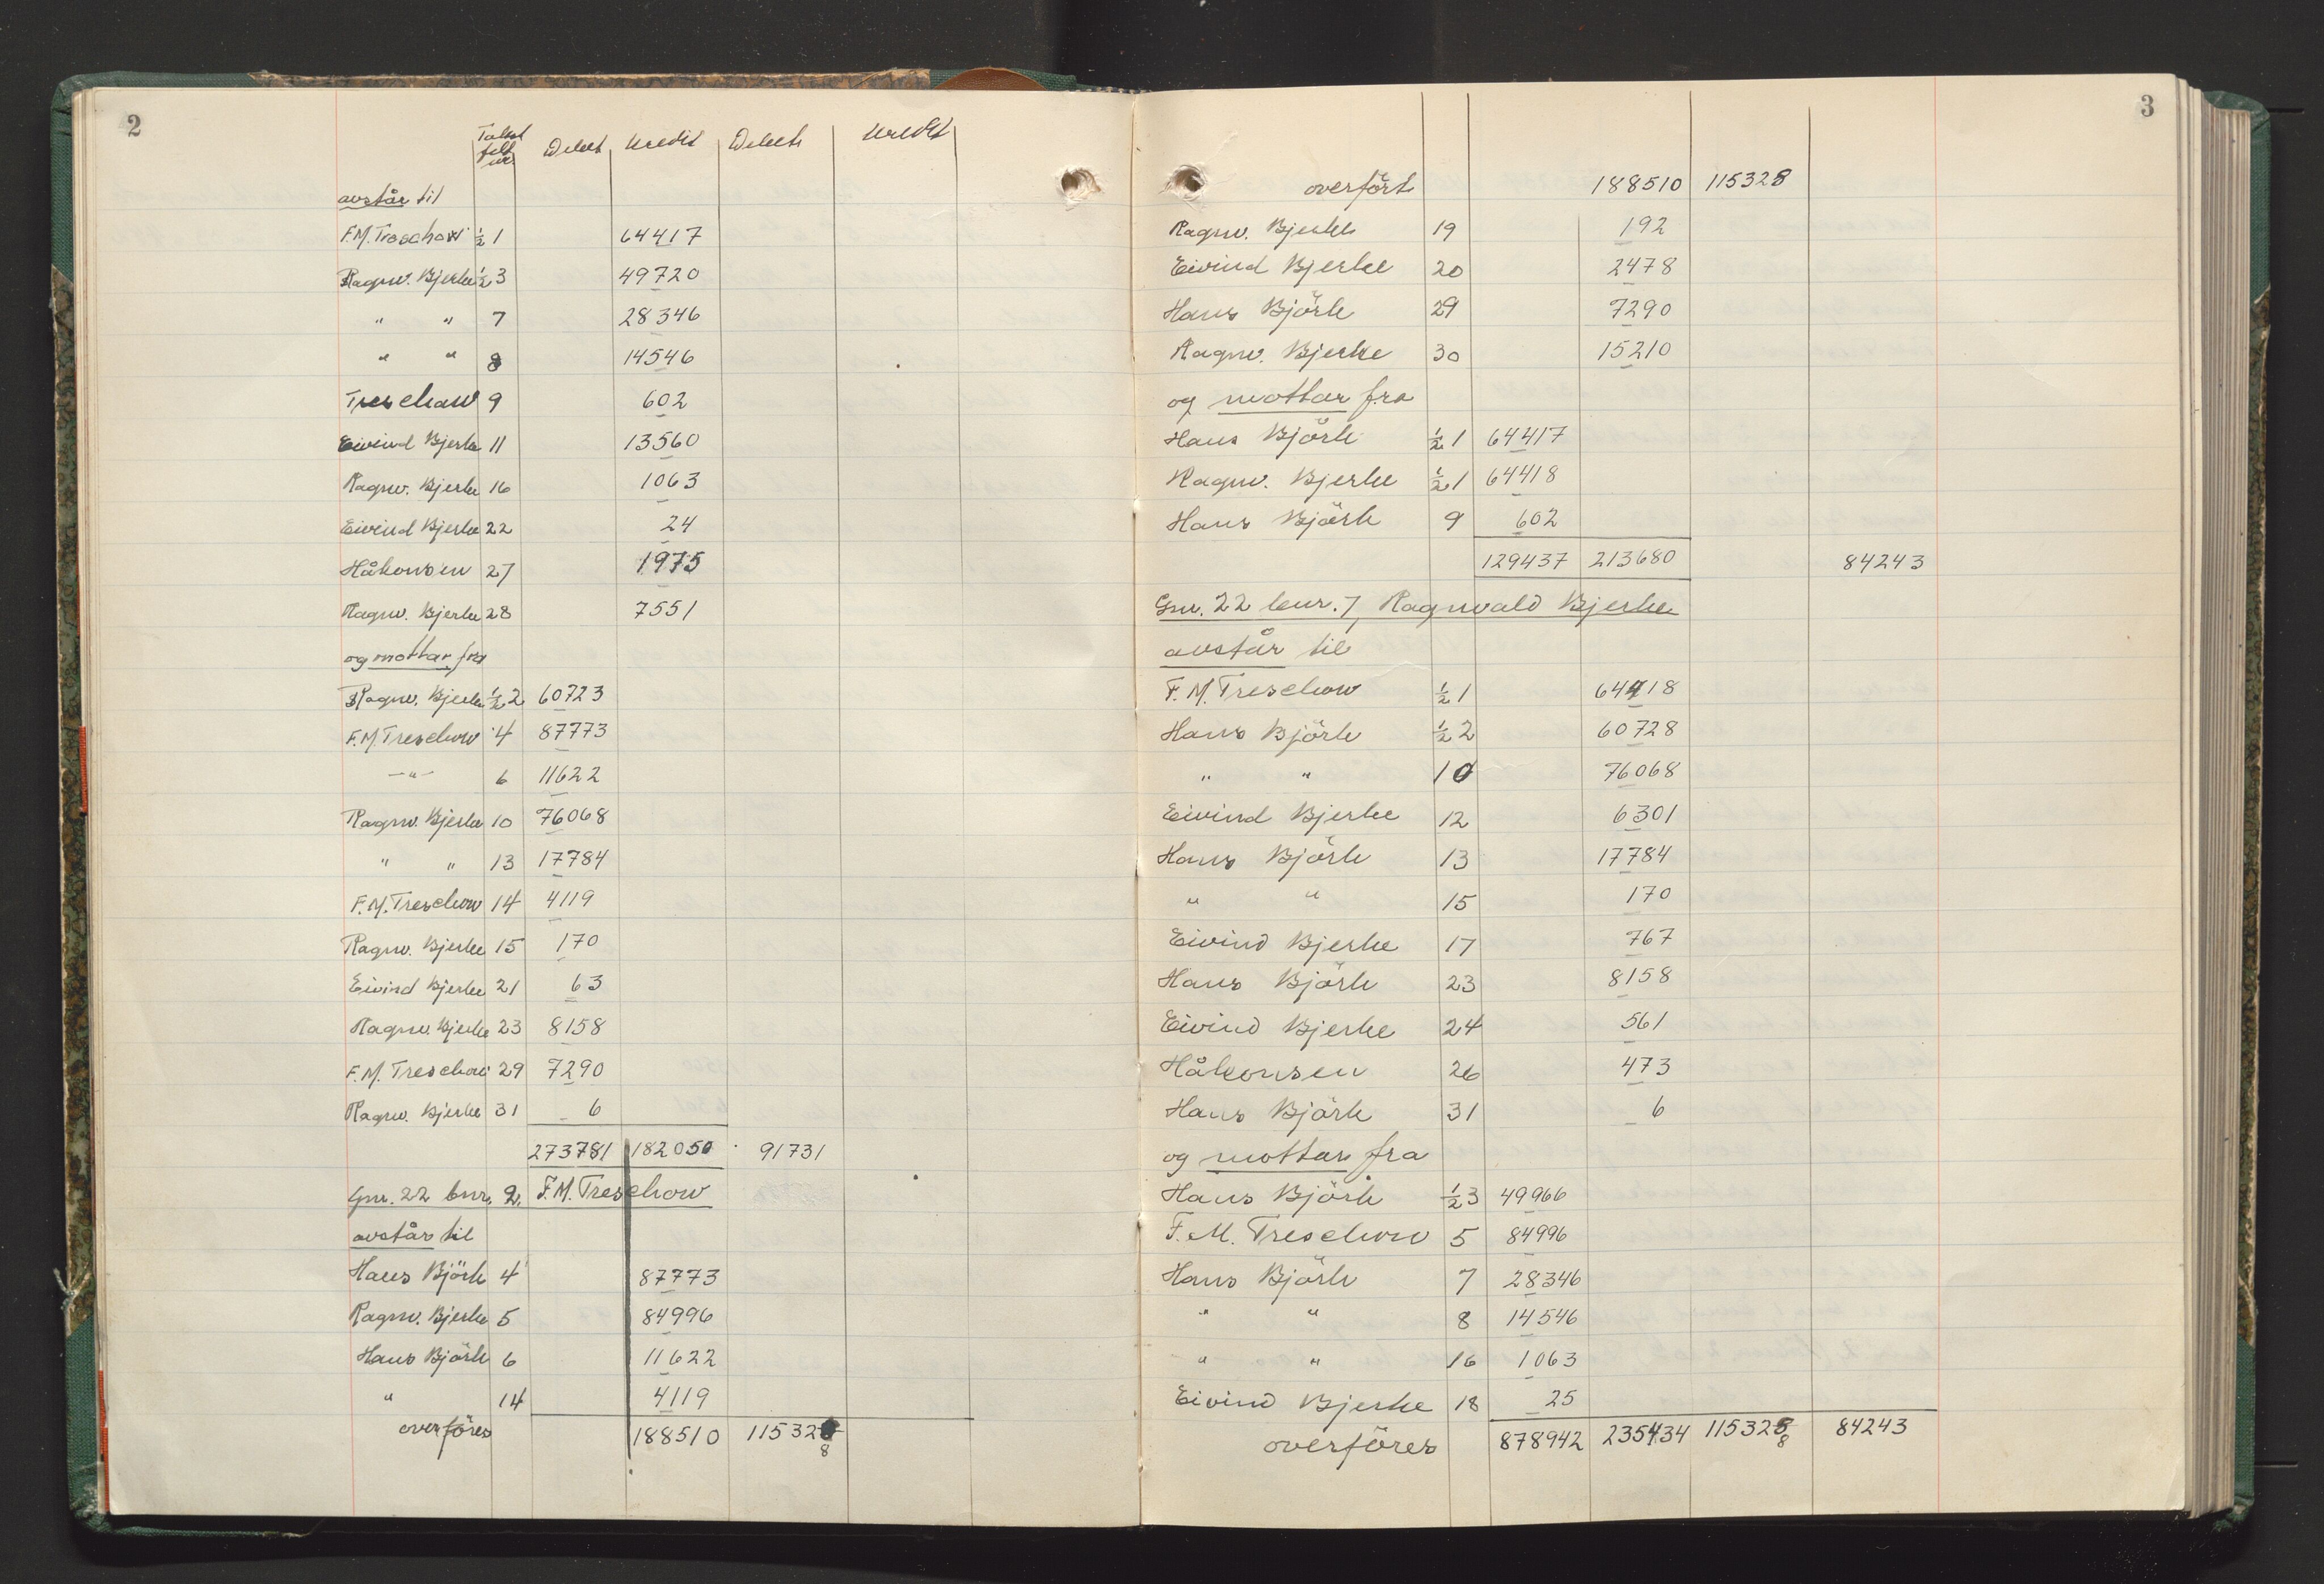 2
Debet Kredit Debet Kredit
avstår til
F.M. Treschow ½ 1 64417
Ragnv. Bjerke ½ 3 49720
" " 7 28346
" " 8 14546
Treschow 9 602
Eivind Bjerke 11 13560
Ragnv. Bjerke 16 1063
Eivind Bjerke 22 24
Håkonsen 27 1975
Ragnv. Bjerke 28 7551
og mottar fra
Ragnv. Bjerke ½ 2 60723
F.M. Treschow 4 87773
—"— 6 11622
Ragnv. Bjerke 10 76068
" " 13 17784
F.M. Treschow 14 4119
Ragnv. Bjerke 15 170
Eivind Bjerke 21 63
Ragnv. Bjerke 23 8158
F.M. Treschow 29 7290
Ragnv. Bjerke 31 6
273781 182050 91731
Gnr. 22 bnr. 2. F.M. Treschow
avstår til
Hans Björk 4 87773
Ragnv. Bjerke 5 84996
Hans Björk 6 11622
" 14 4119
overföres 188510 115328
3
overfört 188510 115328
Ragnv. Bjerke 19 192
Eivind Bjerke 20 2478
Hans Björk 29 7290
Ragnv. Bjerke 30 15210
og mottar fra
Hans Björk ½ 1 64417
Ragnv. Bjerke ½ 1 64418
Hans Björk 9 602
129437 213680 84243
Gnr. 22 bnr. 7, Ragnvald Bjerke
avstår til
F.M. Treschow ½ 1 64418
Hans Björk ½ 2 60728
" " 10 76068
Eivind Bjerke 12 6301
Hans Björk 13 17784
" " 15 170
Eivind Bjerke 17 767
Hans Björk 23 8158
Eivind Bjerke 24 561
Håkonsen 26 473
Hans Björk 31 6
og mottar fra
Hans Björk ½ 3 49966
F.M. Treschow 5 84996
Hans Björk 7 28346
" " 8 14546
" " 16 1063
Eivind Bjerke 18 25
overföres 878942 235434 115328 84243